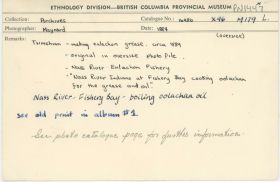 ETHNOLOGY DIVISION—BRITISH COLUMBIA PROVINCIAL MUSEUM PN14447
Collection: Archives Catalogue No.
Photographer: Maynard Date: 1884
Remarks: (oversize)
Tsimshian - making eulachon grease, circa 1884
- original in oversize photo file
- "Nass River Eulachon Fishery
- "Nass River Indians at Fishery Bay cooking oolachan
for the grease and oil".
Nass River - Fishery Bay - boiling oolachan oil
see old print in album #1
See photo catalogue page for further information